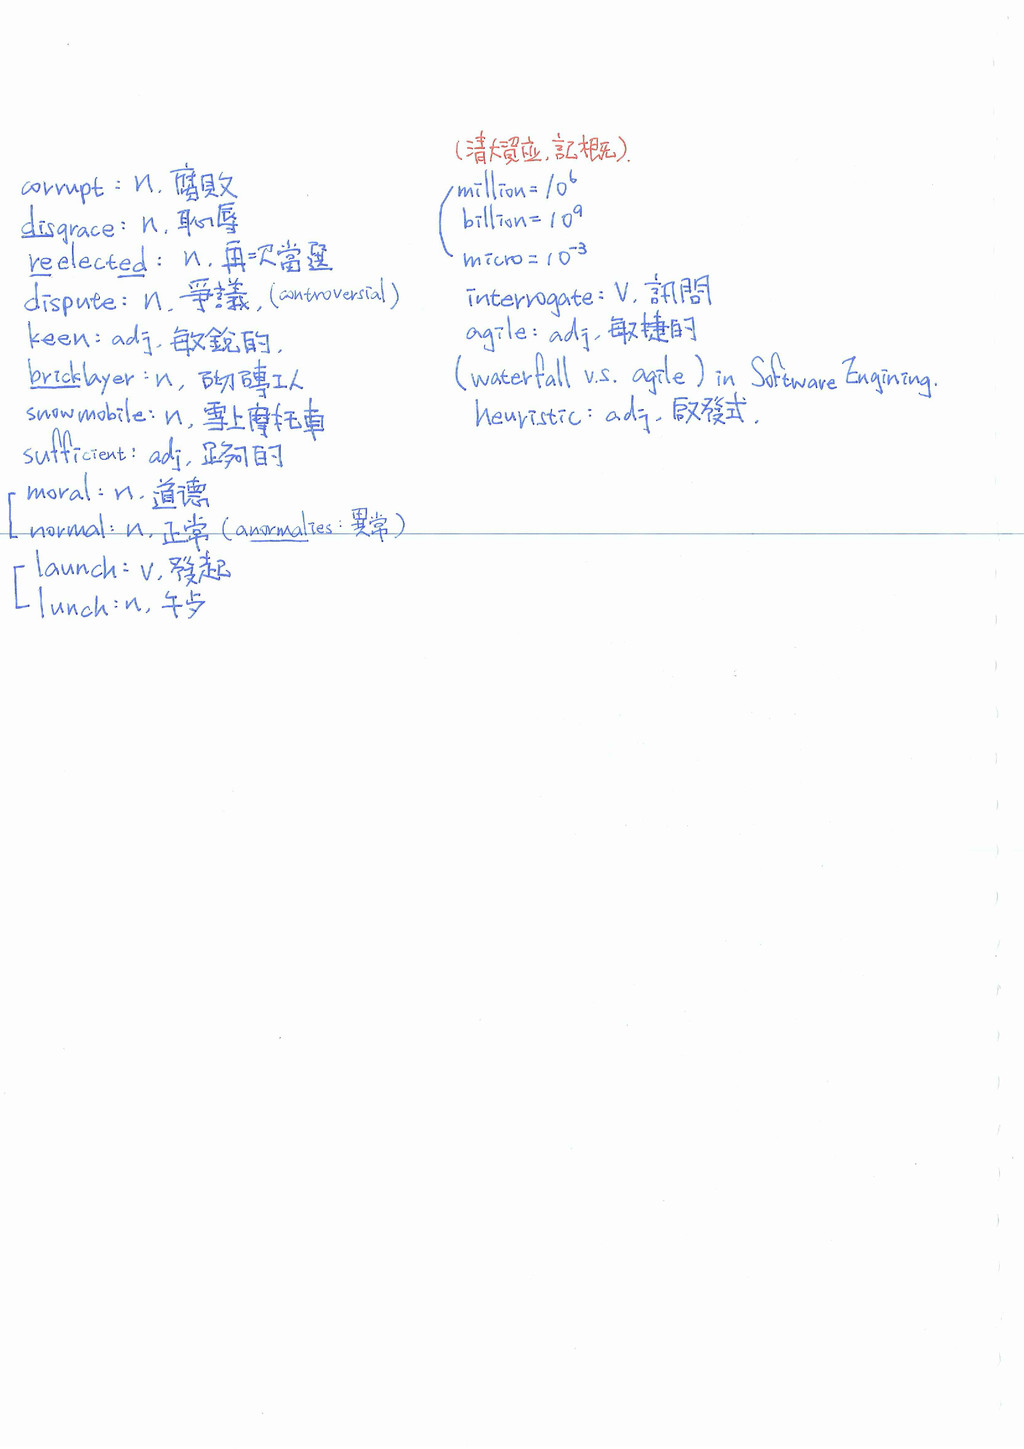 corrupt: n. 腐敗
disgrace: n. 恥辱
reelected: n. 再次當選
dispute: n. 爭議. (controversial)
keen: adj. 敏銳的.
bricklayer: n, 砌磚工人
snowmobile: n, 雪上摩托車
sufficient: adj, 足夠的
moral: n. 道德
normal: n. 正常 (anormalies: 異常)
launch: v, 發起
lunch: n, 午
(清大資應, 記概死).
million = 10⁶
billion = 10⁹
micro = 10⁻³
interrogate: V. 訊問
agile: adj, 敏捷的
(waterfall v.s. agile) in Software Engining.
heuristic: adj. 啟發式.